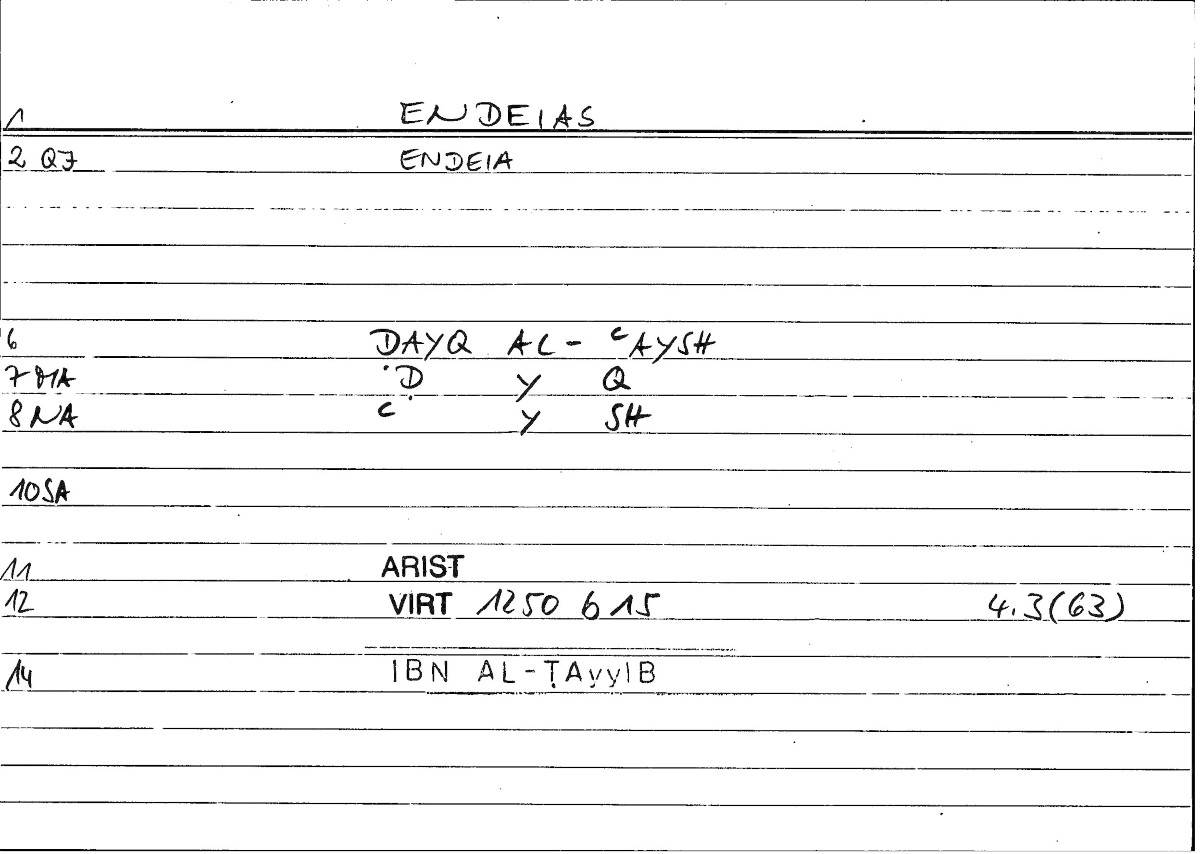 1 ENDEIAS
2 Q7 ENDEIA
6 DAYQ AL- ᶜAYSH
7 MA Ḍ Y Q
8 NA ᶜ Y SH
10 SA
11 ARIST
12 VIRT 1250 b 15 4.3(63)
14 IBN AL-ṬAyyIB